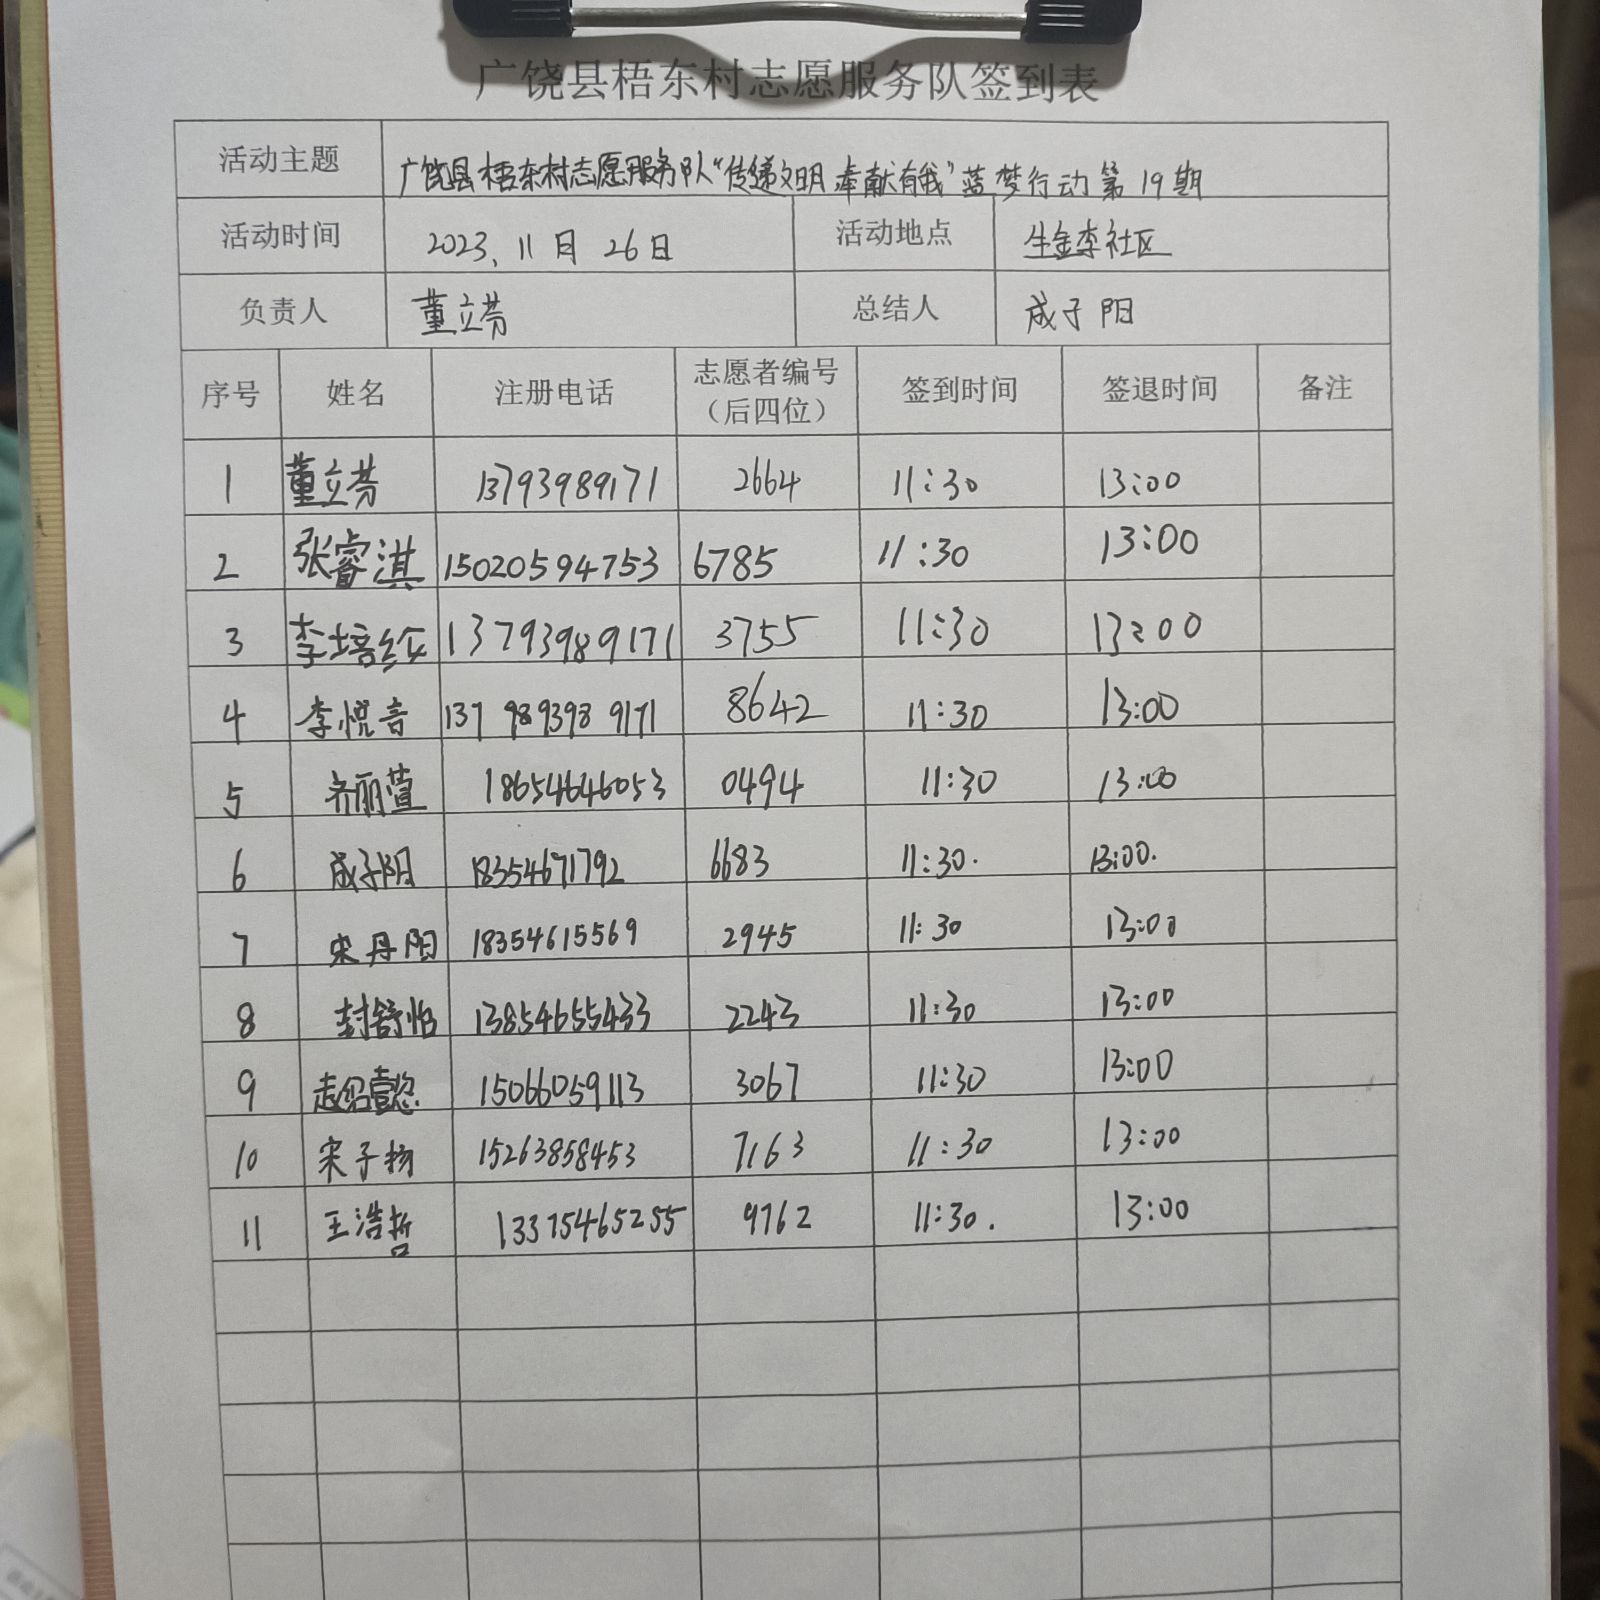 广饶县梧东村志愿服务队签到表
活动主题 广饶县梧东村志愿服务队“传递文明 奉献有我”蓝梦行动第19期
活动时间 2023.11月26日 活动地点 生金李社区
负责人 董立芬 总结人 成子阳
序号 姓名 注册电话 志愿者编号（后四位） 签到时间 签退时间 备注
1 董立芬 13793989171 2664 11:30 13:00
2 张睿淇 15020594753 6785 11:30 13:00
3 李培 13793989171 3755 11:30 13:00
4 李悦音 137 989398 9171 8642 11:30 13:00
5 齐丽萱 18654646053 0494 11:30 13:00
6 成子阳 18354671792 6683 11:30. 13:00.
7 宋丹阳 18354615569 2945 11:30 13:00
8 封舒怡 13854655433 2243 11:30 13:00
9 赵绍懿 15066059113 3067 11:30 13:00
10 宋子扬 15263858453 7163 11:30 13:00
11 王浩哲 13375465255 9762 11:30. 13:00